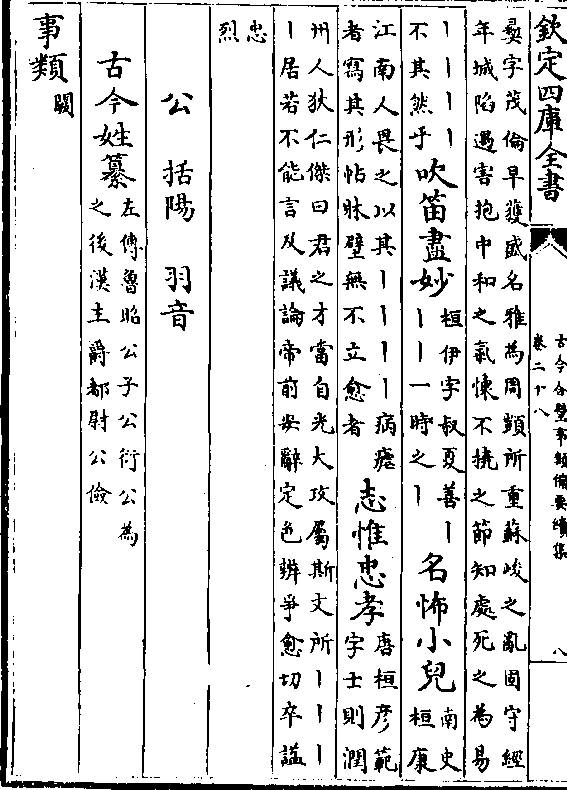 欽定四庫全書
古今合璧事類備要續集
卷二十八
八
彛字茂倫早獲盛名雅為周顗所重蘇峻之亂固守經
年城陷遇害抱中和之氣懐不撓之節知處死之為易
丨丨丨丨
不其然乎
吹笛盡妙
桓伊字叔夏善丨
丨丨一時之丨
名怖小兒
南史
桓康
江南人畏之以其丨丨丨丨病瘧
者寫其形帖牀壁無不立愈者
志惟忠孝
唐桓彦範
字士則潤
州人狄仁傑曰君之才當自光大攻屬斯文所丨丨丨
丨居若不能言及議論帝前安辭定色辨爭愈切卒謚
忠
烈
公 括陽 羽音
古今姓纂
左傳魯昭公子公衍公為
之後漢主爵都尉公儉
事類
闕